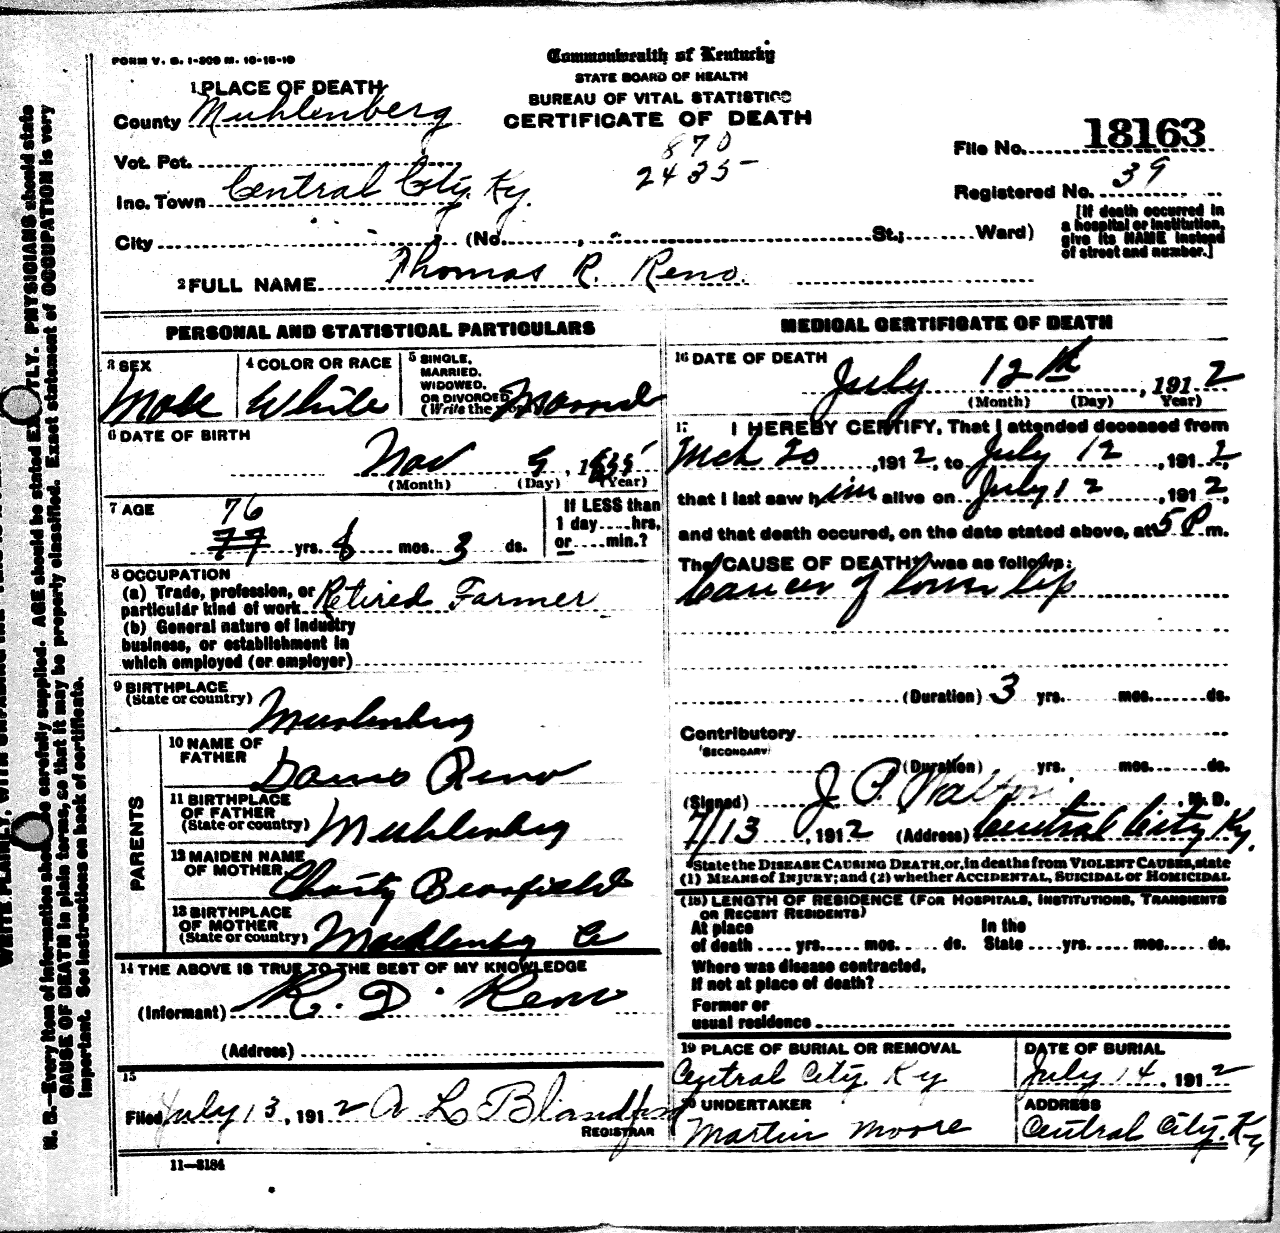 FORM V. S. 1-300 M. 10-18-10
Commonwealth of Kentucky
STATE BOARD OF HEALTH
BUREAU OF VITAL STATISTICS
CERTIFICATE OF DEATH
1 PLACE OF DEATH
County Muhlenberg
Vot. Pct.
Inc. Town Central City, Ky.
City (No. St.; Ward)
870
2435
File No. 18163
Registered No. 39
[If death occurred in
a hospital or institution,
give its NAME instead
of street and number.]
2 FULL NAME Thomas R. Reno.
PERSONAL AND STATISTICAL PARTICULARS
3 SEX
Male
4 COLOR OR RACE
White
5 SINGLE,
MARRIED,
WIDOWED,
OR DIVORCED
(Write the
6 DATE OF BIRTH
Nov 9, 1835
(Month) (Day) (Year)
7 AGE
76
77 yrs. 8 mos. 3 ds.
If LESS than
1 day....hrs,
or....min.?
8 OCCUPATION
(a) Trade, profession, or
particular kind of work Retired Farmer
(b) General nature of industry
business, or establishment in
which employed (or employer)
9 BIRTHPLACE
(State or country) Muhlenberg
PARENTS
10 NAME OF
FATHER Reno
11 BIRTHPLACE
OF FATHER
(State or country) Muhlenberg
12 MAIDEN NAME
OF MOTHER Charity
13 BIRTHPLACE
OF MOTHER
(State or country) Muhlenberg Co
14 THE ABOVE IS TRUE TO THE BEST OF MY KNOWLEDGE
(Informant) R. D. Reno
(Address)
15
Filed July 13, 1912 A L Blandford
REGISTRAR
11—3184
MEDICAL CERTIFICATE OF DEATH
16 DATE OF DEATH
July 12th, 1912
(Month) (Day) Year)
17 I HEREBY CERTIFY, That I attended deceased from
Mch 20, 1912, to July 12, 1912,
that I last saw him alive on July 12, 1912,
and that death occured, on the date stated above, at 5 P m.
The CAUSE OF DEATH* was as follows:
Cancer of lower lip
(Duration) 3 yrs. mos. ds.
Contributory
(SECONDARY)
(Duration) yrs. mos. ds.
(Signed) J. P. Walton, M. D.
7/13, 1912 (Address) Central City Ky.
*State the DISEASE CAUSING DEATH, or, in deaths from VIOLENT CAUSES, state
(1) MEANS of INJURY; and (2) whether ACCIDENTAL, SUICIDAL or HOMICIDAL
(18) LENGTH OF RESIDENCE (FOR HOSPITALS, INSTITUTIONS, TRANSIENTS
OR RECENT RESIDENTS)
At place In the
of death .... yrs. mos. ds. State .... yrs. mos. ds.
Where was disease contracted,
If not at place of death?
Former or
usual residence
19 PLACE OF BURIAL OR REMOVAL
Central City. Ky
DATE OF BURIAL
July 14, 1912
20 UNDERTAKER
Martin Moore
ADDRESS
Central City, Ky
N. B.—Every item of information should be carefully supplied. AGE should be stated EXACTLY. PHYSICIANS should state
CAUSE OF DEATH in plain terms, so that it may be properly classified. Exact statement of OCCUPATION is very
important. See instructions on back of certificate.